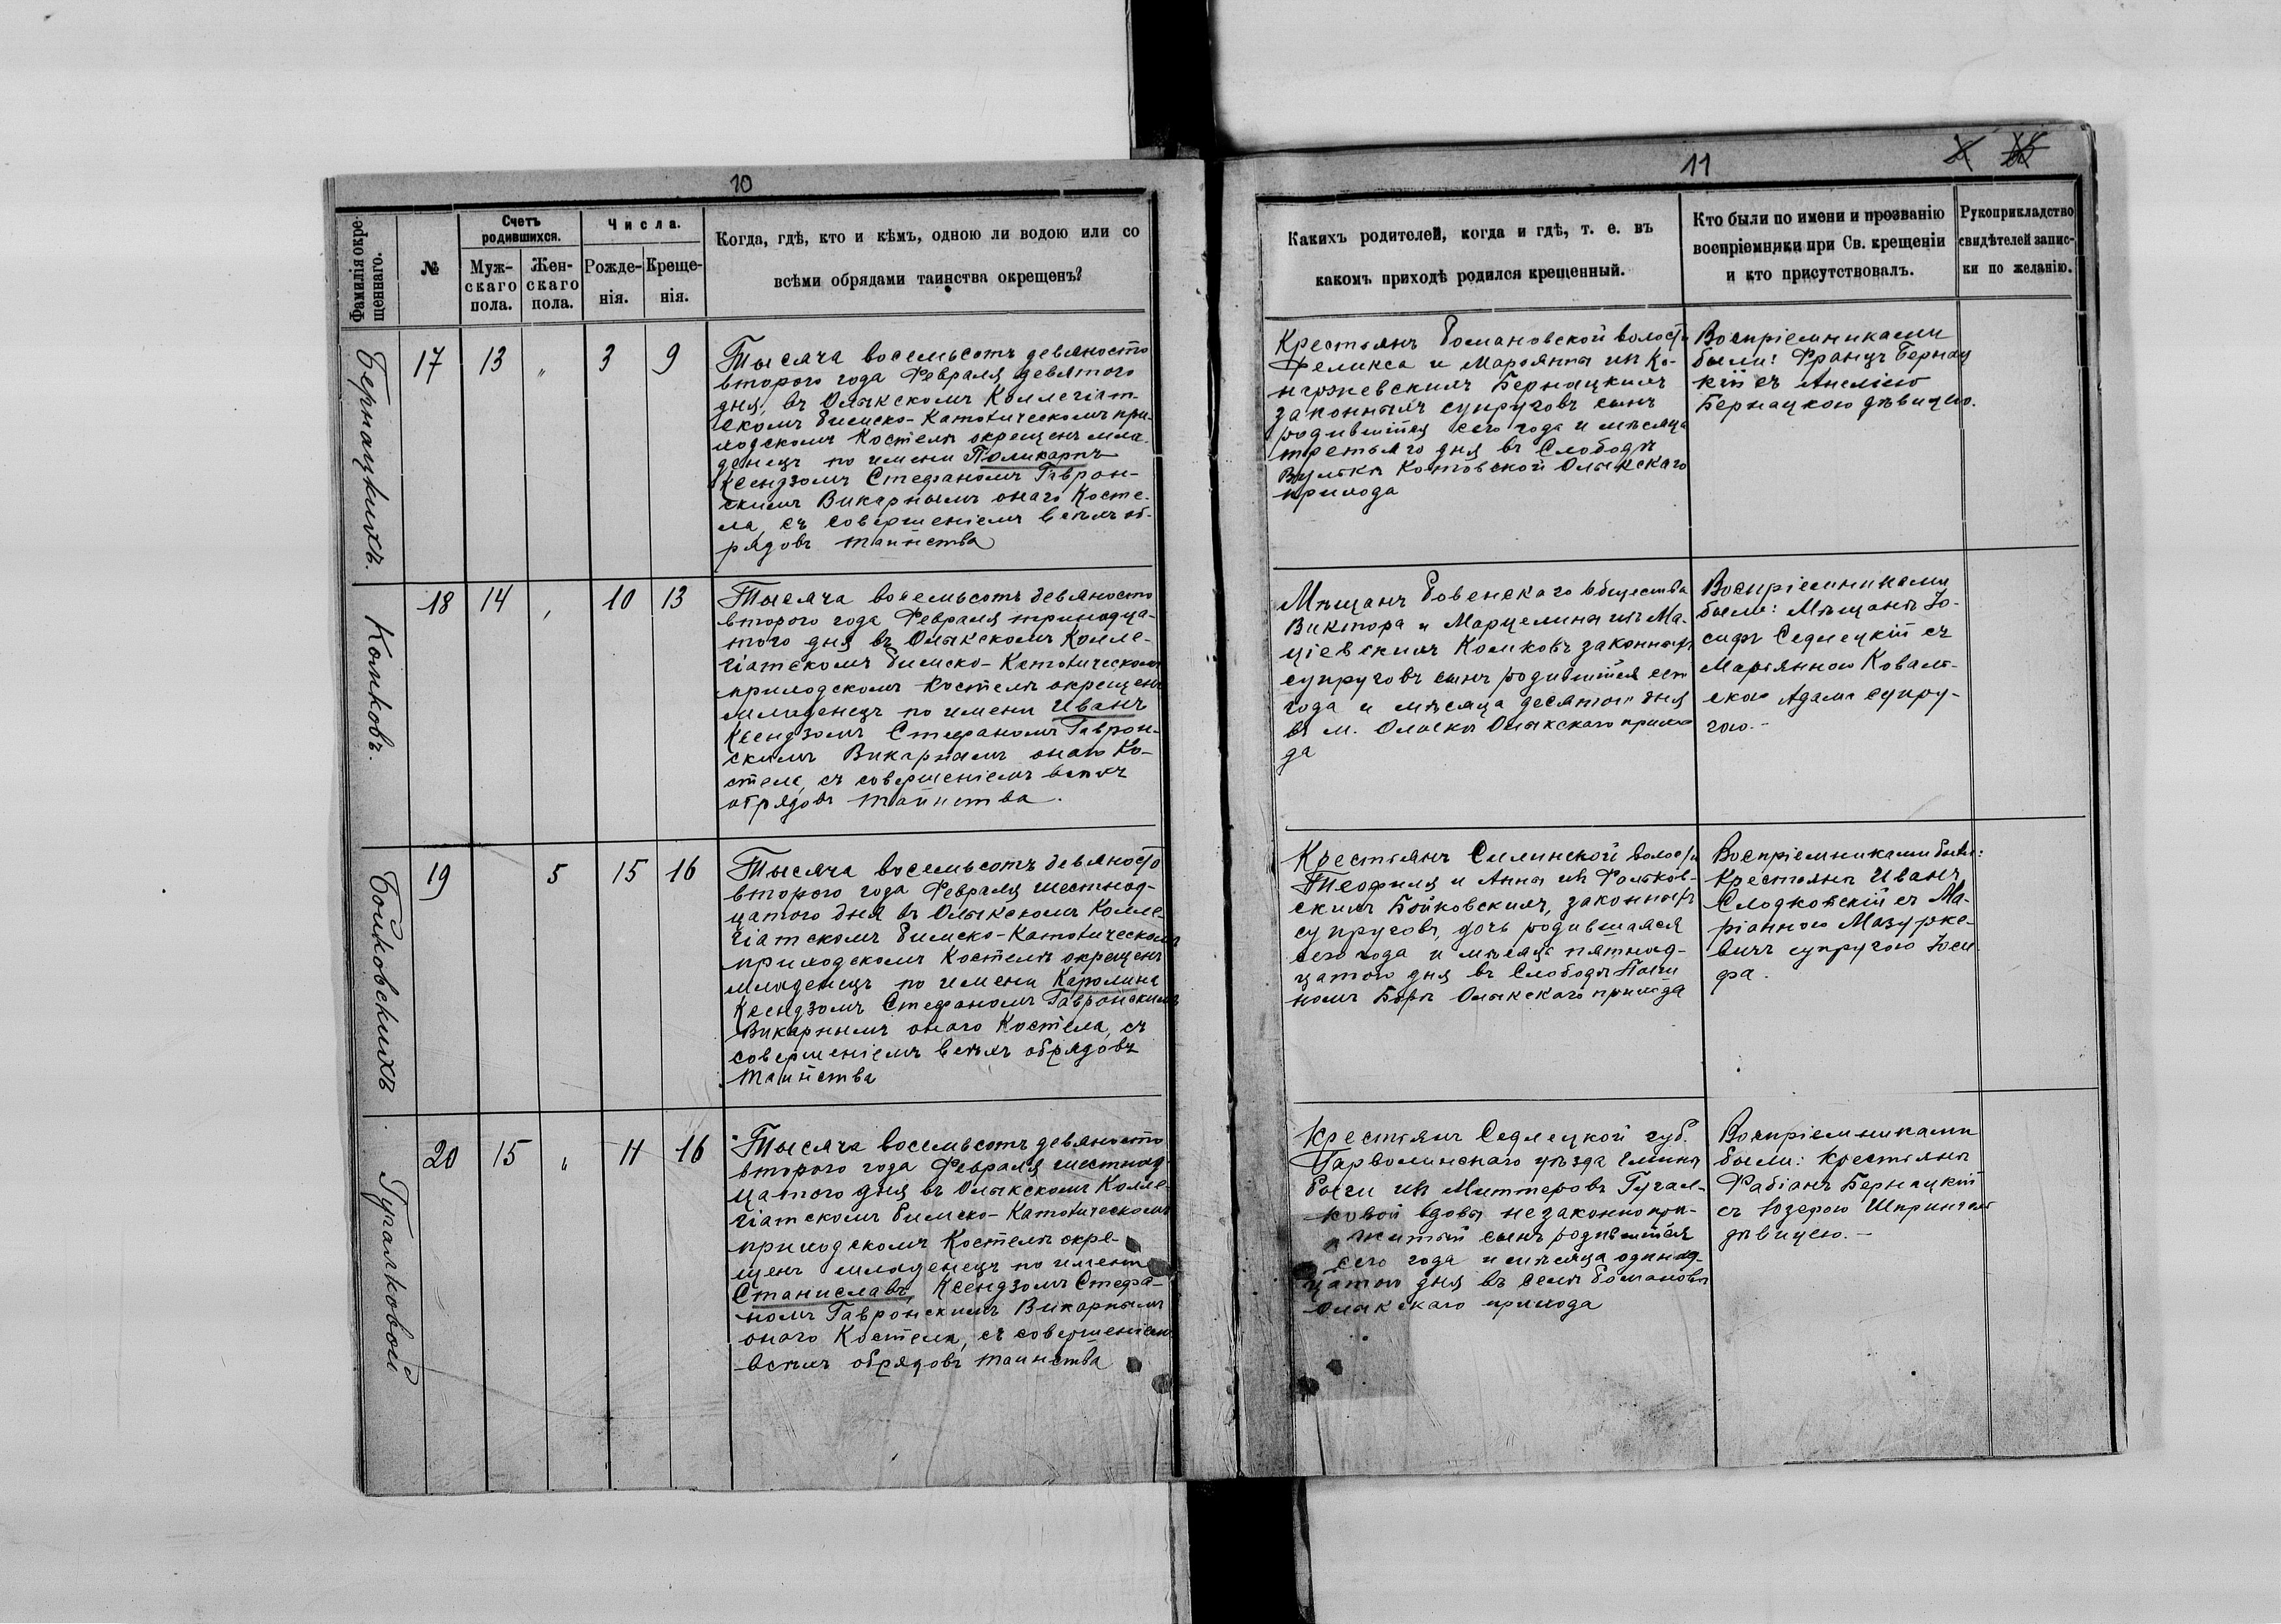 10
Фамилія окре-
щеннаго.
№
Счетъ
родившихся.
Муж-
скаго
пола.
Жен-
скаго
пола.
Числа.
Рожде-
нія.
Креще-
нія.
Когда, гдѣ, кто и кѣмъ, одною ли водою или со
всѣми обрядами таинства окрещенъ?
11
Какихъ родителей, когда и гдѣ, т. е. въ
какомъ приходѣ родился крещенный.
Кто были по имени и прозванію
воспріемники при Св. крещеніи
и кто присутствовалъ.
Рукоприкладство
свидѣтелей запис-
ки по желанію.
Бернацкихъ.
17 13 „ 3 9
Тысяча восемьсотъ девяносто
второго года Февраля девятого
дня, въ Олыкскомъ Коллегіат-
скомъ Римско-Католическомъ при-
ходскомъ Костелѣ окрещенъ мла-
денецъ по имени Поликарпъ
Ксендзомъ Стефаномъ Гаврон-
скимъ Викарнымъ онаго Косте-
ла, съ совершеніемъ всѣхъ об-
рядовъ таинства
Крестьянъ Романовской волости
Феликса и Марьянны изъ
Бернацкихъ
законныхъ супруговъ сынъ
родившійся сего года и мѣсяца
третьяго дня въ Слободѣ
Вулькѣ Котовской Олыкскаго
прихода
Воспріемниками
были: Францъ Бернац
кій съ Анеліею
Бернацкою дѣвицею.
Котковъ.
18 14 „ 10 13
Тысяча восемьсотъ девяносто
второго года Февраля тринадца-
того дня въ Олыкскомъ Колле-
гіатскомъ Римско-Католическомъ
приходскомъ Костелѣ окрещенъ
младенецъ по имени Иванъ
Ксендзомъ Стефаномъ Гаврон-
скимъ Викарнымъ онаго Ко-
стела, съ совершеніемъ всѣхъ
обрядовъ таинства.
Мѣщанъ Ровенскаго общества
Виктора и Марцелины изъ Ма-
ціевскихъ законныхъ
супруговъ сынъ родившійся сего
года и мѣсяца десятого дня
въ м. Олыкѣ Олыкскаго прихо
да
Воспріемниками
были: Мѣщанъ Іо-
сифъ Седлецкій съ
Марьянною Коваль-
скою Адама супру-
гою.-
Бойковскихъ
19 5 15 16
Тысяча восемьсотъ девяносто
второго года Февраля шестнад-
цатого дня въ Олыкскомъ Колле-
гіатскомъ Римско-Католическомъ
приходскомъ Костелѣ окрещенъ
младенецъ по имени Каролина
Ксендзомъ Стефаномъ Гавронскимъ
Викарнымъ онаго Костела, съ
совершеніемъ всѣхъ обрядовъ
таинства
Крестьянъ Силинской волости
Теофиля и Анны изъ Фальков-
скихъ Бойковскихъ, законныхъ
супруговъ, дочь родившаяся
сего года и мѣсяца пятнад-
цатого дня въ Слободѣ
Олыкскаго прихода
Воспріемниками были:
Крестьянъ Иванъ
Слодковскій съ Ма-
ріанною Мазурке-
вичъ супругою Іоси
фа.
Гугалковой
20 15 „ 11 16
Тысяча восемьсотъ девяносто
второго года Февраля шестнад-
цатого дня въ Олыкскомъ Колле-
гіатскомъ Римско-Католическомъ
приходскомъ Костелѣ окре-
щенъ младенецъ по имени
Станиславъ, Ксендзомъ Стефа-
номъ Гавронскимъ Викарнымъ
онаго Костела, съ совершеніем
всѣхъ обрядовъ таинства
Крестьянъ Седлецкой губ.
Гарволинскаго уѣзда Гмины
изъ Миттеровъ Гугал-
ковой вдовы незаконнопри-
житый сынъ родившійся
сего года и мѣсяца одиннад-
цатого дня въ селѣ Романовѣ
Олыкскаго прихода
Воспріемниками
были: Крестьянъ
Фабіанъ Бернацкій
съ Юзефою
дѣвицею.-